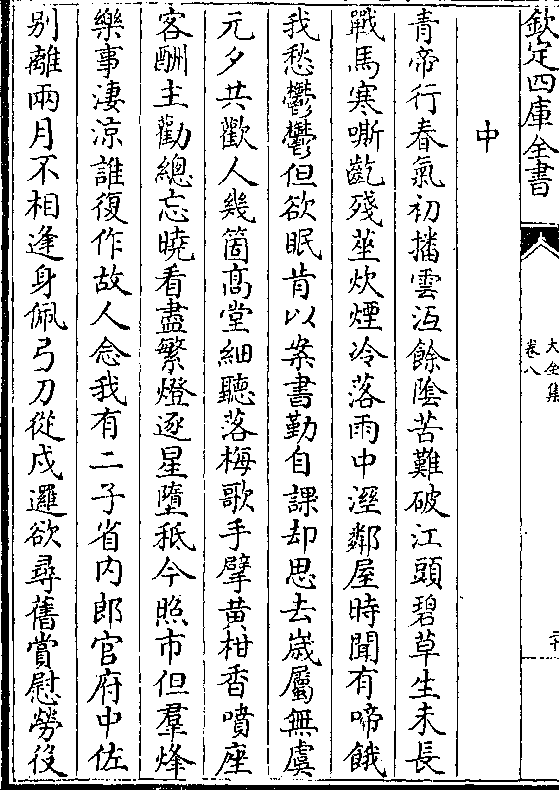 欽定四庫全書
大全集
卷八
中
青帝行春氣初播雲沍餘陰苦難破江頭碧草生未長
戰馬寒嘶齕殘莝炊煙冷落雨中溼鄰屋時聞有啼餓
我愁鬱鬱但欲眠肯以案書勤自課却思去歲屬無虞
元夕共歡人幾箇髙堂細聽落梅歌手擘黄柑香噴座
客酬主勸總忘曉看盡繁燈逐星墮秪今照市但羣烽
樂事淒涼誰復作故人念我有二子省内郎官府中佐
别離兩月不相逢身佩弓刀從戍邏欲尋舊賞慰勞役